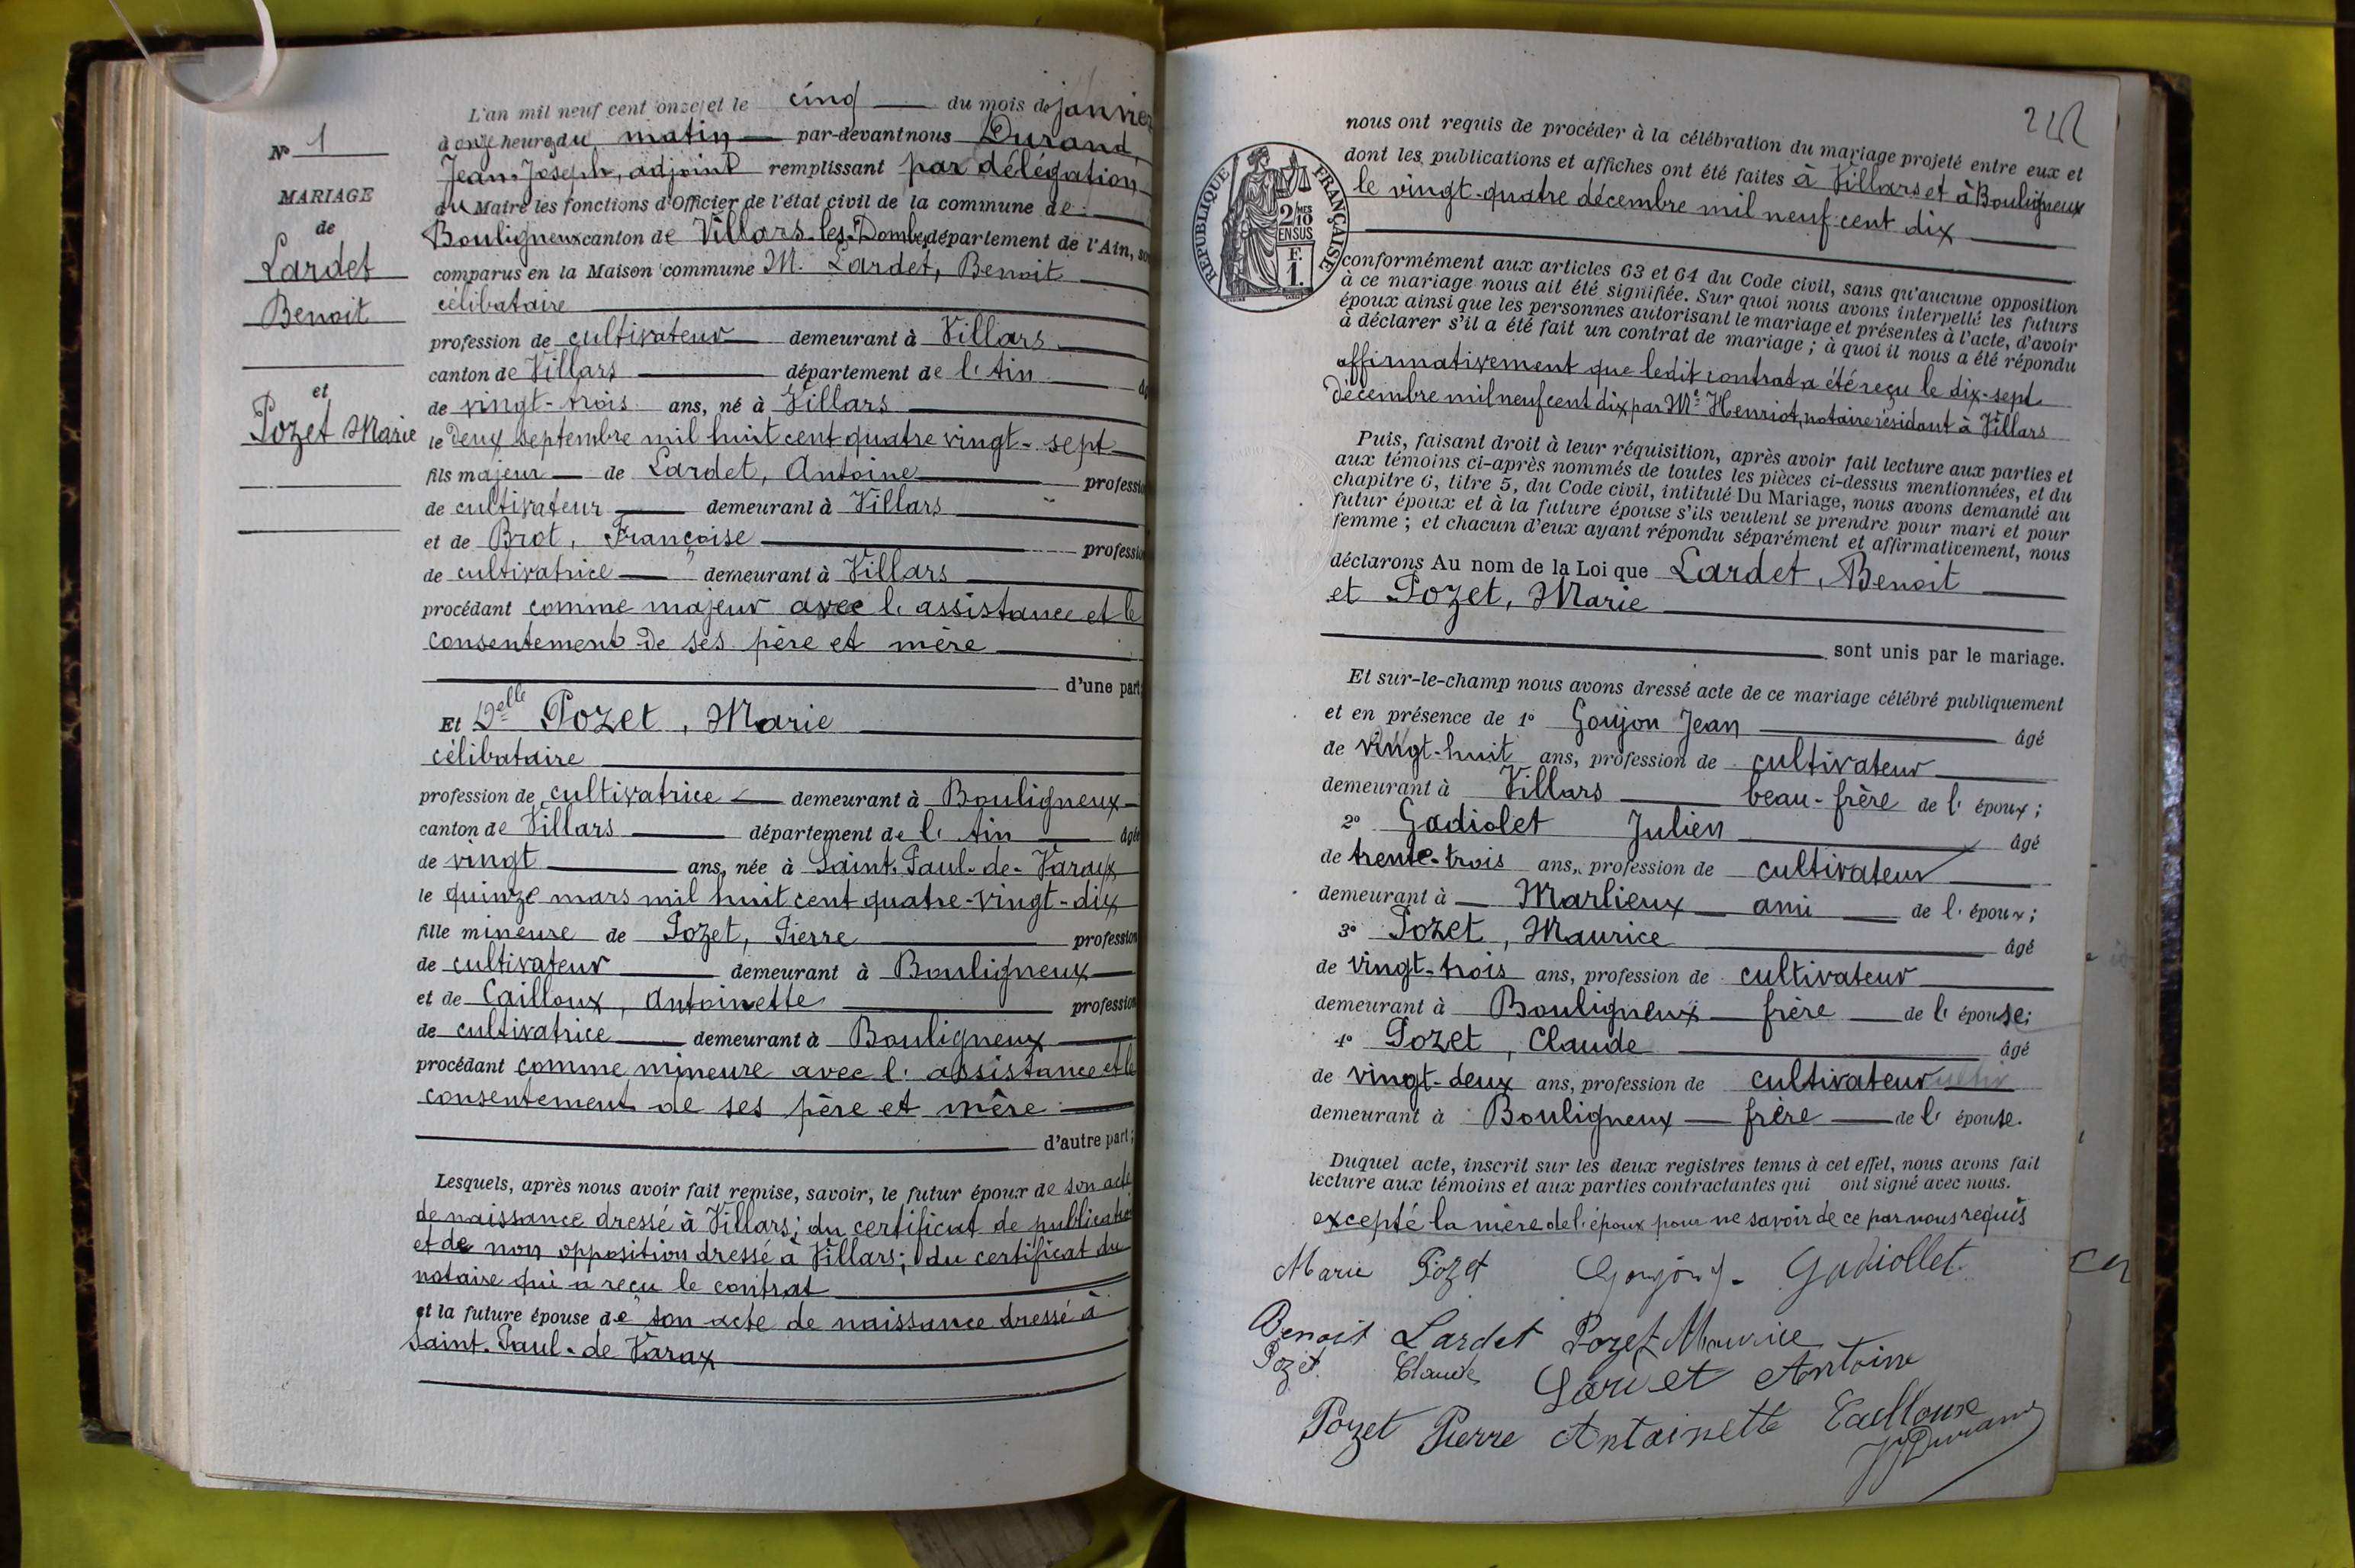 N° 1
MARIAGE
de
Lardet
Benoit
et
Pozet Marie
L'an mil neuf cent onze, et le cinq du mois de janvier
à onze heures du matin par-devant nous Durand,
Jean-Joseph, adjoint remplissant par délégation
du Maire les fonctions d'Officier de l'état civil de la commune de
Bouligneux canton de Villars-les-Dombes, département de l'Ain, so
comparus en la Maison commune M. Lardet, Benoit
célibataire
profession de cultivateur demeurant à Villars
canton de Villars département de l'Ain
de vingt-trois ans, né à Villars
le deux septembre mil huit cent quatre vingt-sept
fils majeur de Lardet, Antoine professio
de cultivateur demeurant à Villars
et de Brot, Françoise professio
de cultivatrice demeurant à Villars
procédant comme majeur avec l'assistance et le
consentement de ses père et mère
d'une part
Et Delle Pozet, Marie
célibataire
profession de cultivatrice demeurant à Bouligneux
canton de Villars département de l'Ain âgée
de vingt ans, née à Saint-Paul-de-Varax
le quinze mars mil huit cent quatre-vingt-dix
fille mineure de Pozet, Pierre profession
de cultivateur demeurant à Bouligneux
et de Cailloux, Antoinette profession
de cultivatrice demeurant à Bouligneux
procédant comme mineure avec l'assistance et le
consentement de ses père et mère
d'autre part;
Lesquels, après nous avoir fait remise, savoir, le futur époux de son acte
de naissance dressé à Villars; du certificat de publication
et de non opposition dressé à Villars; du certificat du
notaire qui a reçu le contrat
et la future épouse de son acte de naissance dressé à
Saint-Paul-de Varax
RÉPUBLIQUE FRANÇAISE
2/10 MES
EN SUS
F.
1.
nous ont requis de procéder à la célébration du mariage projeté entre eux et
dont les publications et affiches ont été faites à Villars et à Bouligneux
le vingt-quatre décembre mil neuf cent dix
conformément aux articles 63 et 64 du Code civil, sans qu'aucune opposition
à ce mariage nous ait été signifiée. Sur quoi nous avons interpellé les futurs
époux ainsi que les personnes autorisant le mariage et présentes à l'acte, d'avoir
à déclarer s'il a été fait un contrat de mariage; à quoi il nous a été répondu
affirmativement que ledit contrat a été reçu le dix-sept
décembre mil neuf cent dix par Me Henriot, notaire résidant à Villars
Puis, faisant droit à leur réquisition, après avoir fait lecture aux parties et
aux témoins ci-après nommés de toutes les pièces ci-dessus mentionnées, et du
chapitre 6, titre 5, du Code civil, intitulé Du Mariage, nous avons demandé au
futur époux et à la future épouse s'ils veulent se prendre pour mari et pour
femme; et chacun d'eux ayant répondu séparément et affirmativement, nous
déclarons Au nom de la Loi que Lardet, Benoit
et Pozet, Marie
sont unis par le mariage.
Et sur-le-champ nous avons dressé acte de ce mariage célébré publiquement
et en présence de 1° Goujon Jean âgé
de vingt-huit ans, profession de cultivateur
demeurant à Villars beau-frère de l'époux;
2° Gadiolet Julien âgé
de trente-trois ans, profession de cultivateur
demeurant à Marlieux ami de l'époux;
3° Pozet, Maurice âgé
de vingt-trois ans, profession de cultivateur
demeurant à Bouligneux frère de l'épouse;
4° Pozet, Claude âgé
de vingt-deux ans, profession de cultivateur
demeurant à Bouligneux frère de l'épouse.
Duquel acte, inscrit sur les deux registres tenus à cet effet, nous avons fait
lecture aux témoins et aux parties contractantes qui ont signé avec nous.
excepté la mère de l'époux pour ne savoir de ce par nous requis
Marie Pozet Goujon J. Gadiollet
Benoit Lardet Pozet Maurice
Pozet Claude Lardet Antoine
Pozet Pierre Antoinette Cailloux
JJ Durand